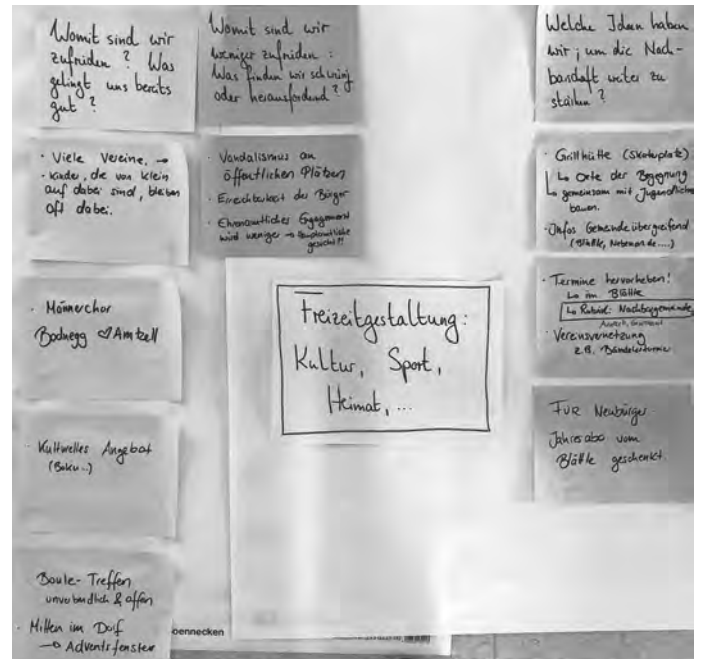 Womit sind wir
zufrieden? Was
gelingt uns bereits
gut?
· Viele Vereine, →
· Kinder, die von klein
auf dabei sind, bleiben
oft dabei.
· Männerchor
Bodnegg ♡ Amtzell
· Kulturelles Angebot
(BoKu..)
Boule-Treffen
unverbindlich & offen
· Mitten im Dorf
→ Adventsfenster
Womit sind wir
weniger zufrieden:
Was finden wir schwierig
oder herausfordernd?
· Vandalismus an
öffentlichen Plätzen
· Erreichbarkeit der Bürger
· Ehrenamtliches Engagement
wird weniger → Hauptamtliche
gesucht!!
Freizeitgestaltung:
Kultur, Sport,
Heimat, ...
Welche Ideen haben
wir, um die Nach-
barschaft weiter zu
stärken?
· Grillhütte (Skaterplatz)
↳ Orte der Begegnung
↳ gemeinsam mit Jugendlichen
bauen.
· Infos Gemeindeübergreifend
(Blättle,
· Termine hervorheben!
↳ im Blättle
↳ Rubrik: Nachbargemeinde
· Vereinsvernetzung
z.B.
Für Neubürger
Jahresabo vom
Blättle geschenkt.
oennecken